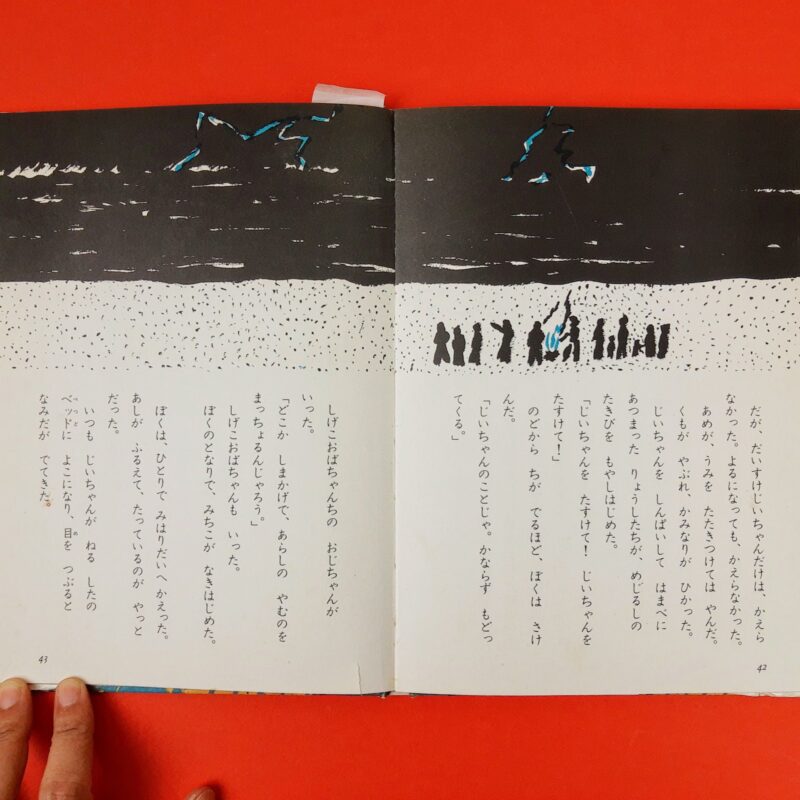 だが、だいすけじいちゃんだけは、かえら
なかった。よるになっても、かえらなかった。
あめが、うみを たたきつけては やんだ。
くもが やぶれ、かみなりが ひかった。
じいちゃんを しんぱいして はまべに
あつまった りょうしたちが、めじるしの
たきびを もやしはじめた。
「じいちゃんを たすけて! じいちゃんを
たすけて!」
のどから ちが でるほど、ぼくは さけ
んだ。
「じいちゃんのことじゃ。かならず もどっ
てくる。」
42
しげこおばちゃんちの おじちゃんが
いった。
「どこか しまかげで、あらしの やむのを
まっちょるんじゃろう。」
しげこおばちゃんも いった。
ぼくのとなりで、みちこが なきはじめた。
ぼくは、ひとりで みはりだいへ かえった。
あしが ふるえて、たっているのが やっと
だった。
いつも じいちゃんが ねる したの
ベッドに よこになり、目を つぶると
なみだが でてきた。
べっど
め
43